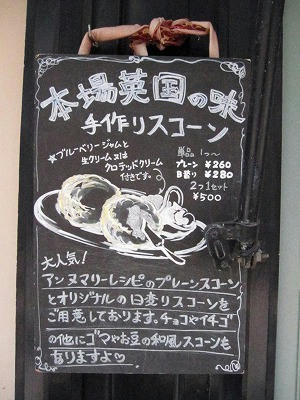 本場英国の味
手作リスコーン
★ブルーベリージャムと
生クリーム又は
クロテッドクリーム
付きです。
単品 1つ〜
プレーン ¥260
日替り ¥280
2つ1セット
¥500
大人気!
アンヌマリーレシピのプレーンスコーン
とオリジナルの日変リスコーンを
ご用意しております。チョコやイチゴ
の他にゴマやお豆の和風スコーンも
ありますよ♡